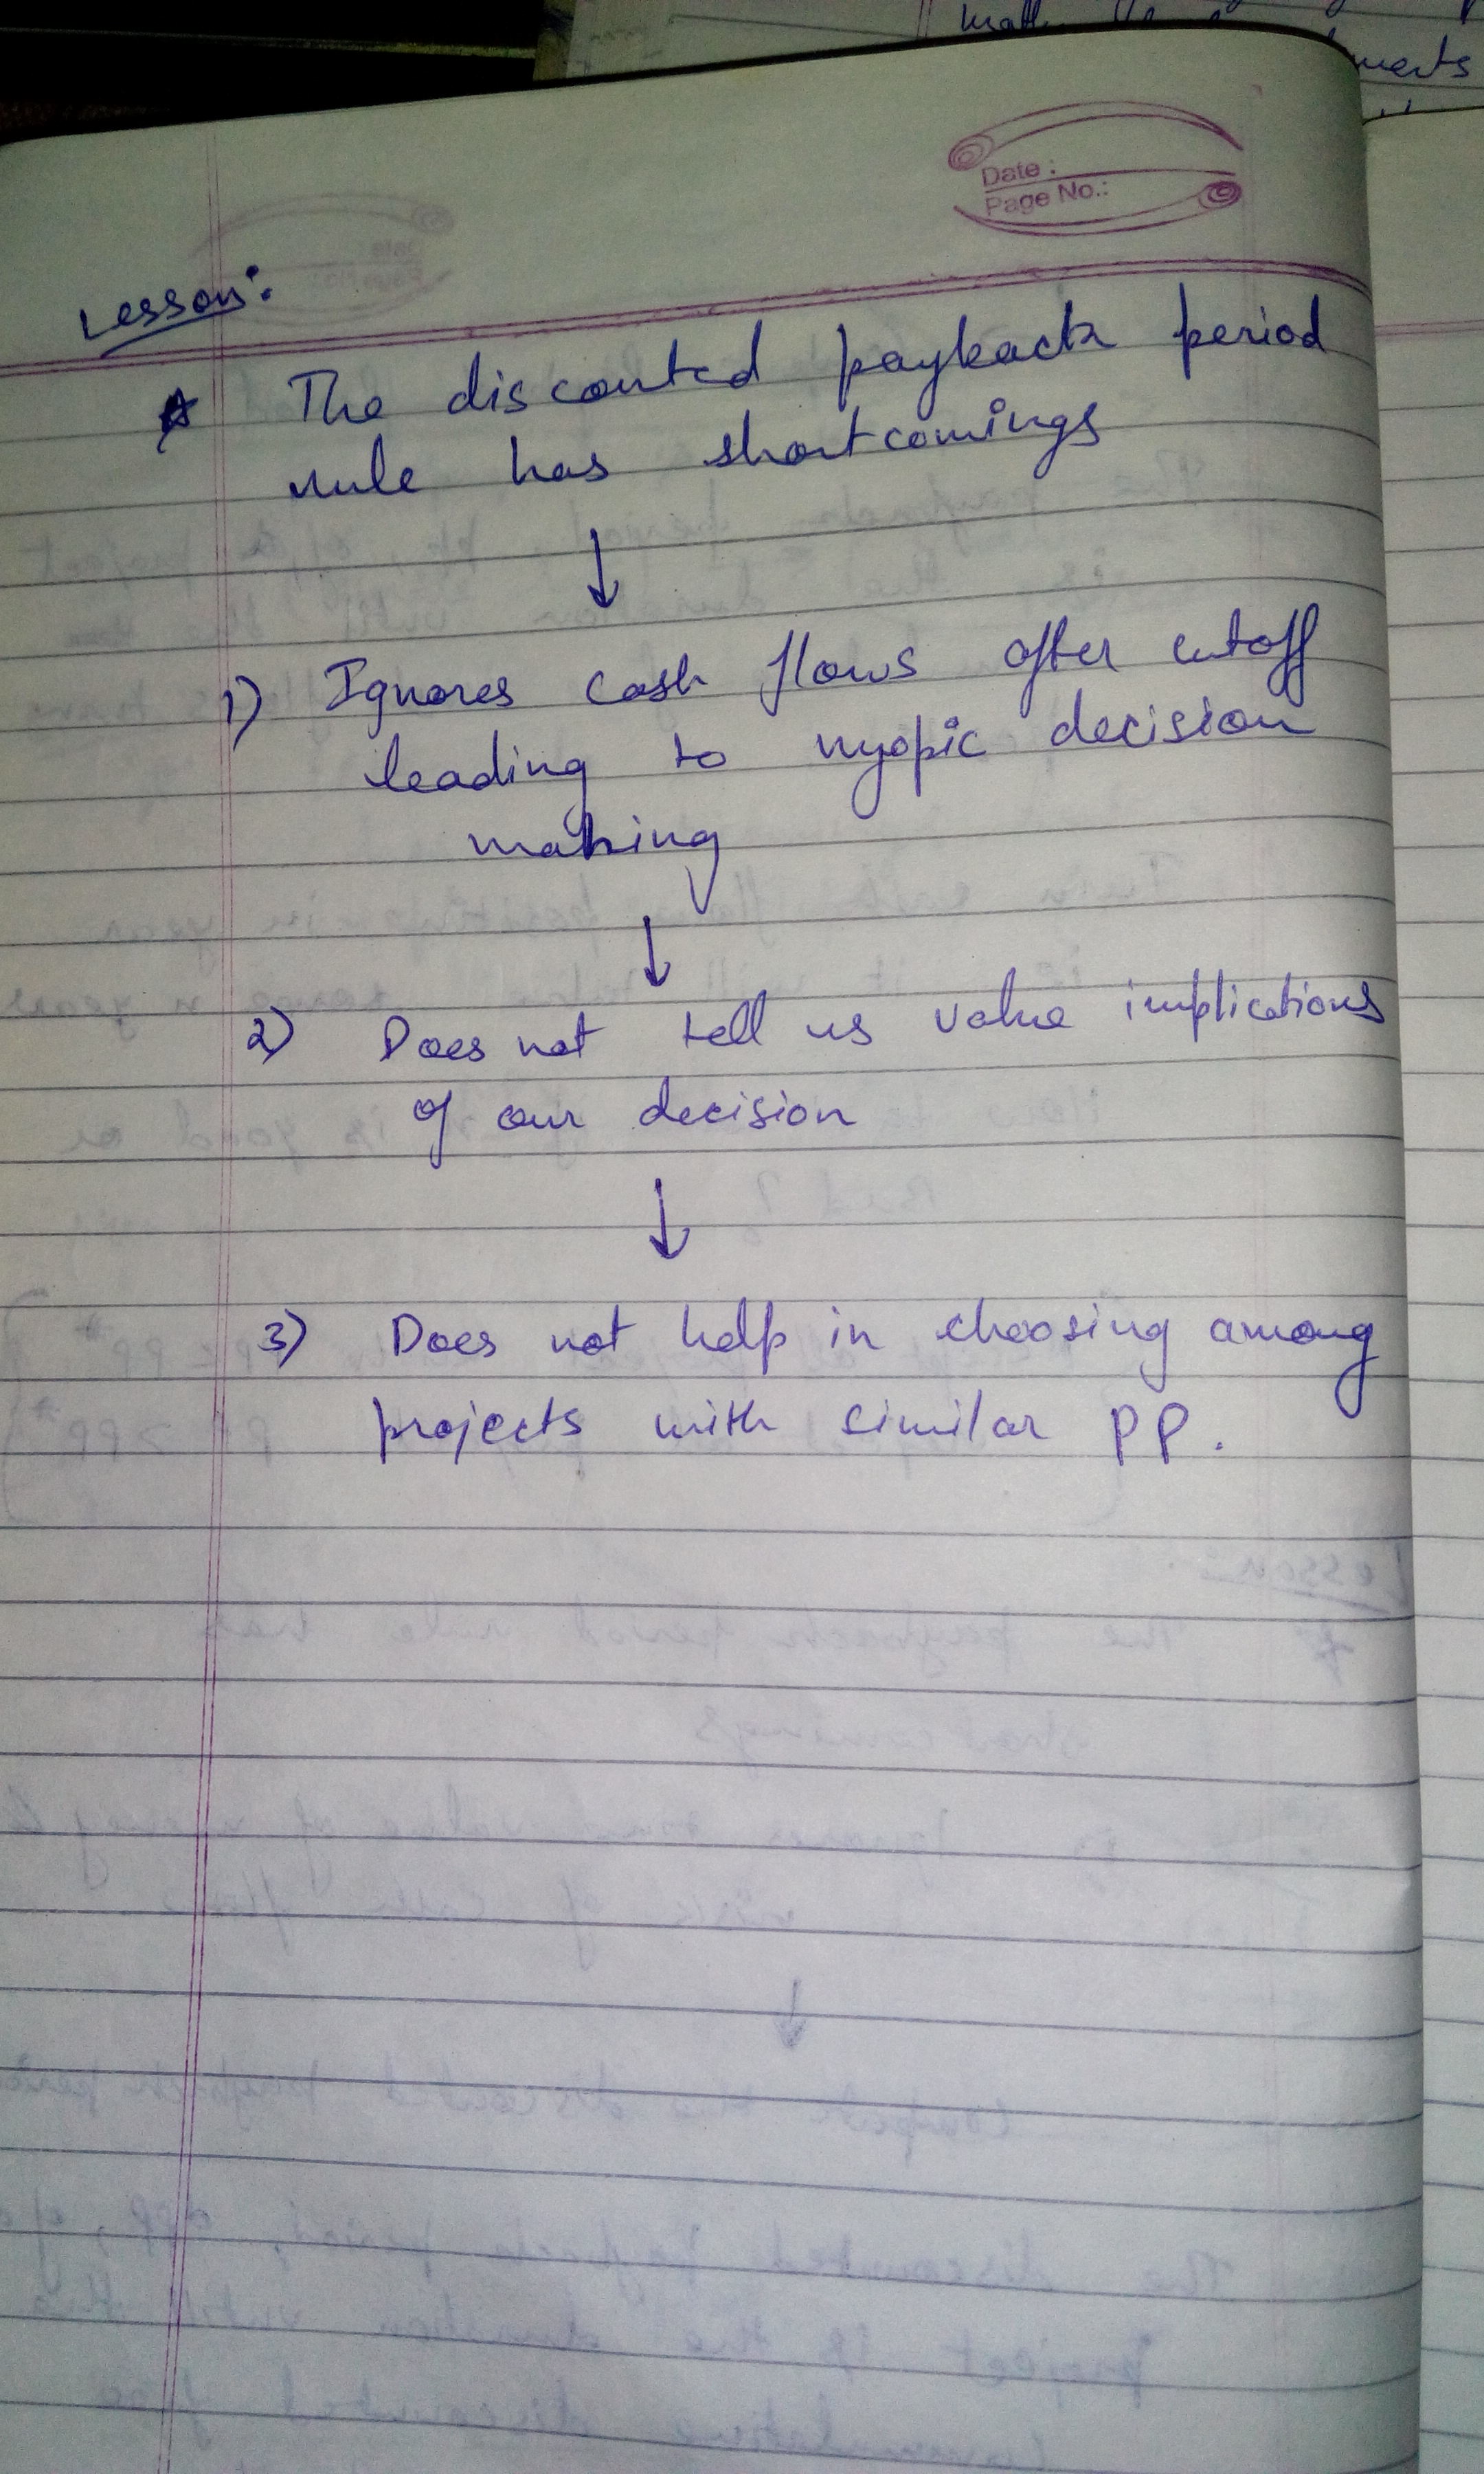 matt
ments
Date :
Page No.:
Lesson:
* The discounted payback period
rule has shortcomings
↓
1) Ignores cash flows after cutoff
leading to myopic decision
making
↓
2) Does not tell us value implications
of our decision
↓
3) Does not help in choosing among
projects with similar PP.